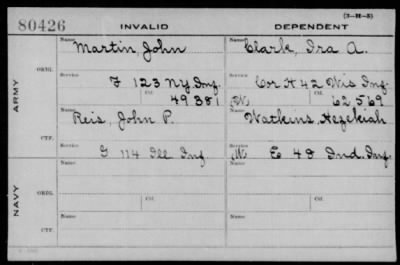 (3-H-5)
80426 INVALID DEPENDENT
Name Martin, John Name Clark, Ira A.
ARMY
ORIG.
Service F 123 NY Inf. Service Cor H 42 Wis Inf.
Ctf. 49381 W Ctf. 62569
Name Reis, John P. Name Watkins, Hezekiah
CTF.
Service G 114 Ill Inf. Service M E 48 Ind. Inf.
NAVY
Name Name
ORIG.
Service Ctf. Service Ctf.
Name Name
CTF.
Service Service